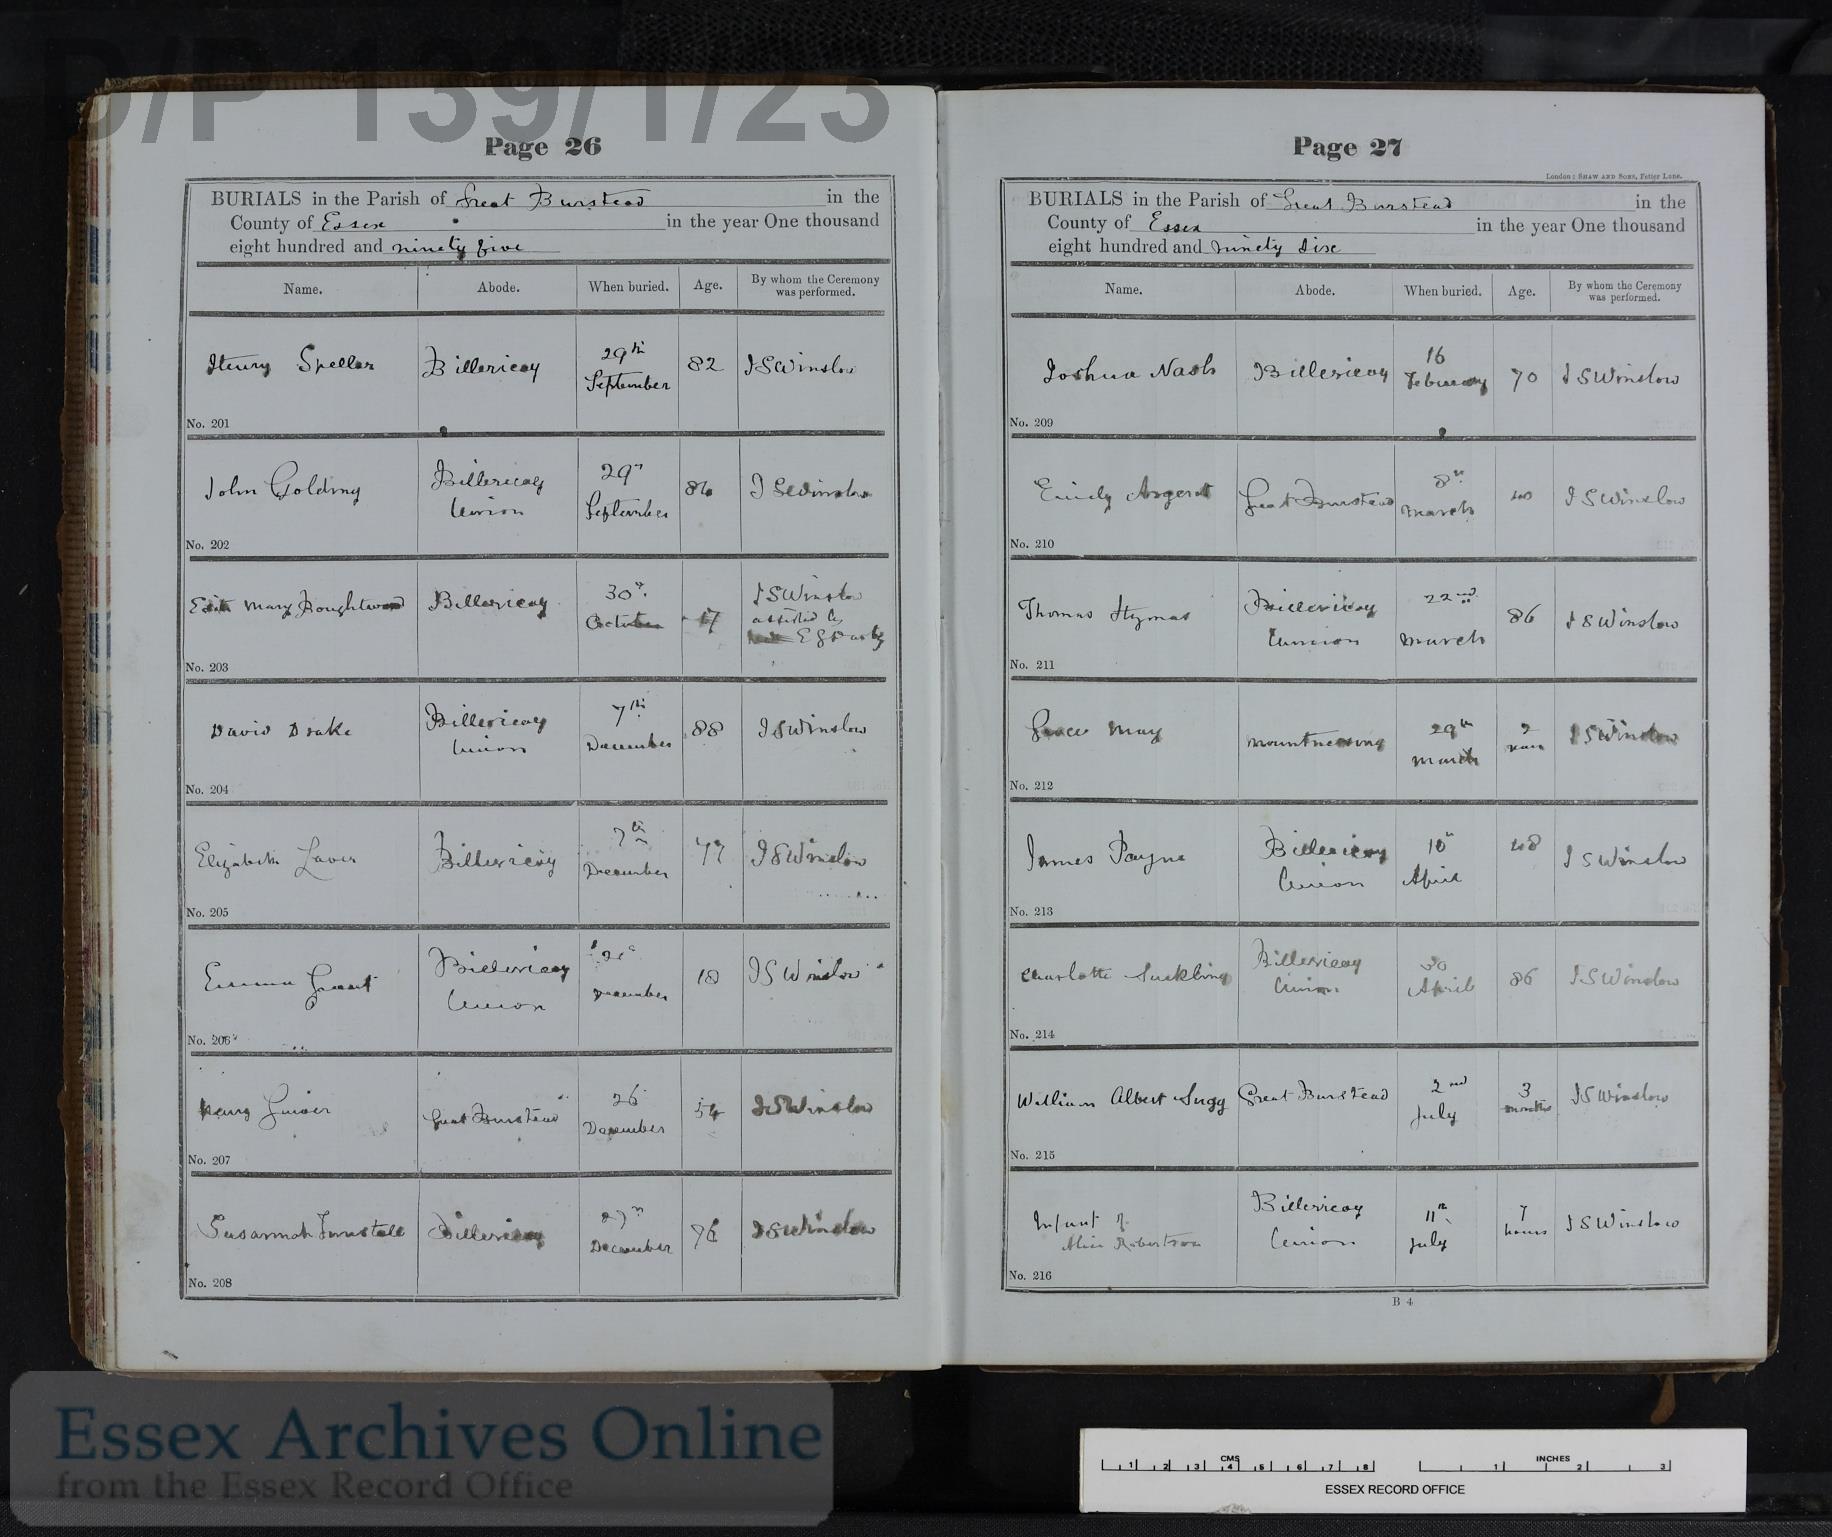 D/P 139/1/23
Page 26
BURIALS in the Parish of Great Burstead in the
County of Essex in the year One thousand
eight hundred and ninety five
Name. Abode. When buried. Age. By whom the Ceremony was performed.
Henry Speller Billericay 29th September 82 J S Winslow
No. 201
John Golding Billericay Union 29th September J S Winslow
No. 202
Mary Boughtwood Billericay 30th October 17 J S Winslow
assisted by
No. 203
David Drake Billericay Union 7th December 88 J S Winslow
No. 204
Elizabeth Laver Billericay 7th December 77 J S Winslow
No. 205
Emma Grant Billericay Union December 18 J S Winslow
No. 206
Great Burstead 26 December 54 J S Winslow
No. 207
Susannah Tunstall Billericay 27th December 76 J S Winslow
No. 208
Page 27
London: SHAW AND SONS, Fetter Lane.
BURIALS in the Parish of Great Burstead in the
County of Essex in the year One thousand
eight hundred and ninety six
Name. Abode. When buried. Age. By whom the Ceremony was performed.
Joshua Nash Billericay 16 February 70 J S Winslow
No. 209
Emily Argent Great Burstead 8th March J S Winslow
No. 210
Thomas Hymas Billericay Union 22nd March 86 J S Winslow
No. 211
Grace May Mountnessing 29th March J S Winslow
No. 212
James Payne Billericay Union 10th April 48 J S Winslow
No. 213
Charlotte Suckling Billericay Union 30 April 86 J S Winslow
No. 214
William Albert Sugg Great Burstead 2nd July 3 months J S Winslow
No. 215
Infant of
Alice Robertson Billericay Union 11th July 7 hours J S Winslow
No. 216
B 4
Essex Archives Online
from the Essex Record Office
CMS
1 2 3 4 5 6 7 8
INCHES
1 2 3
ESSEX RECORD OFFICE